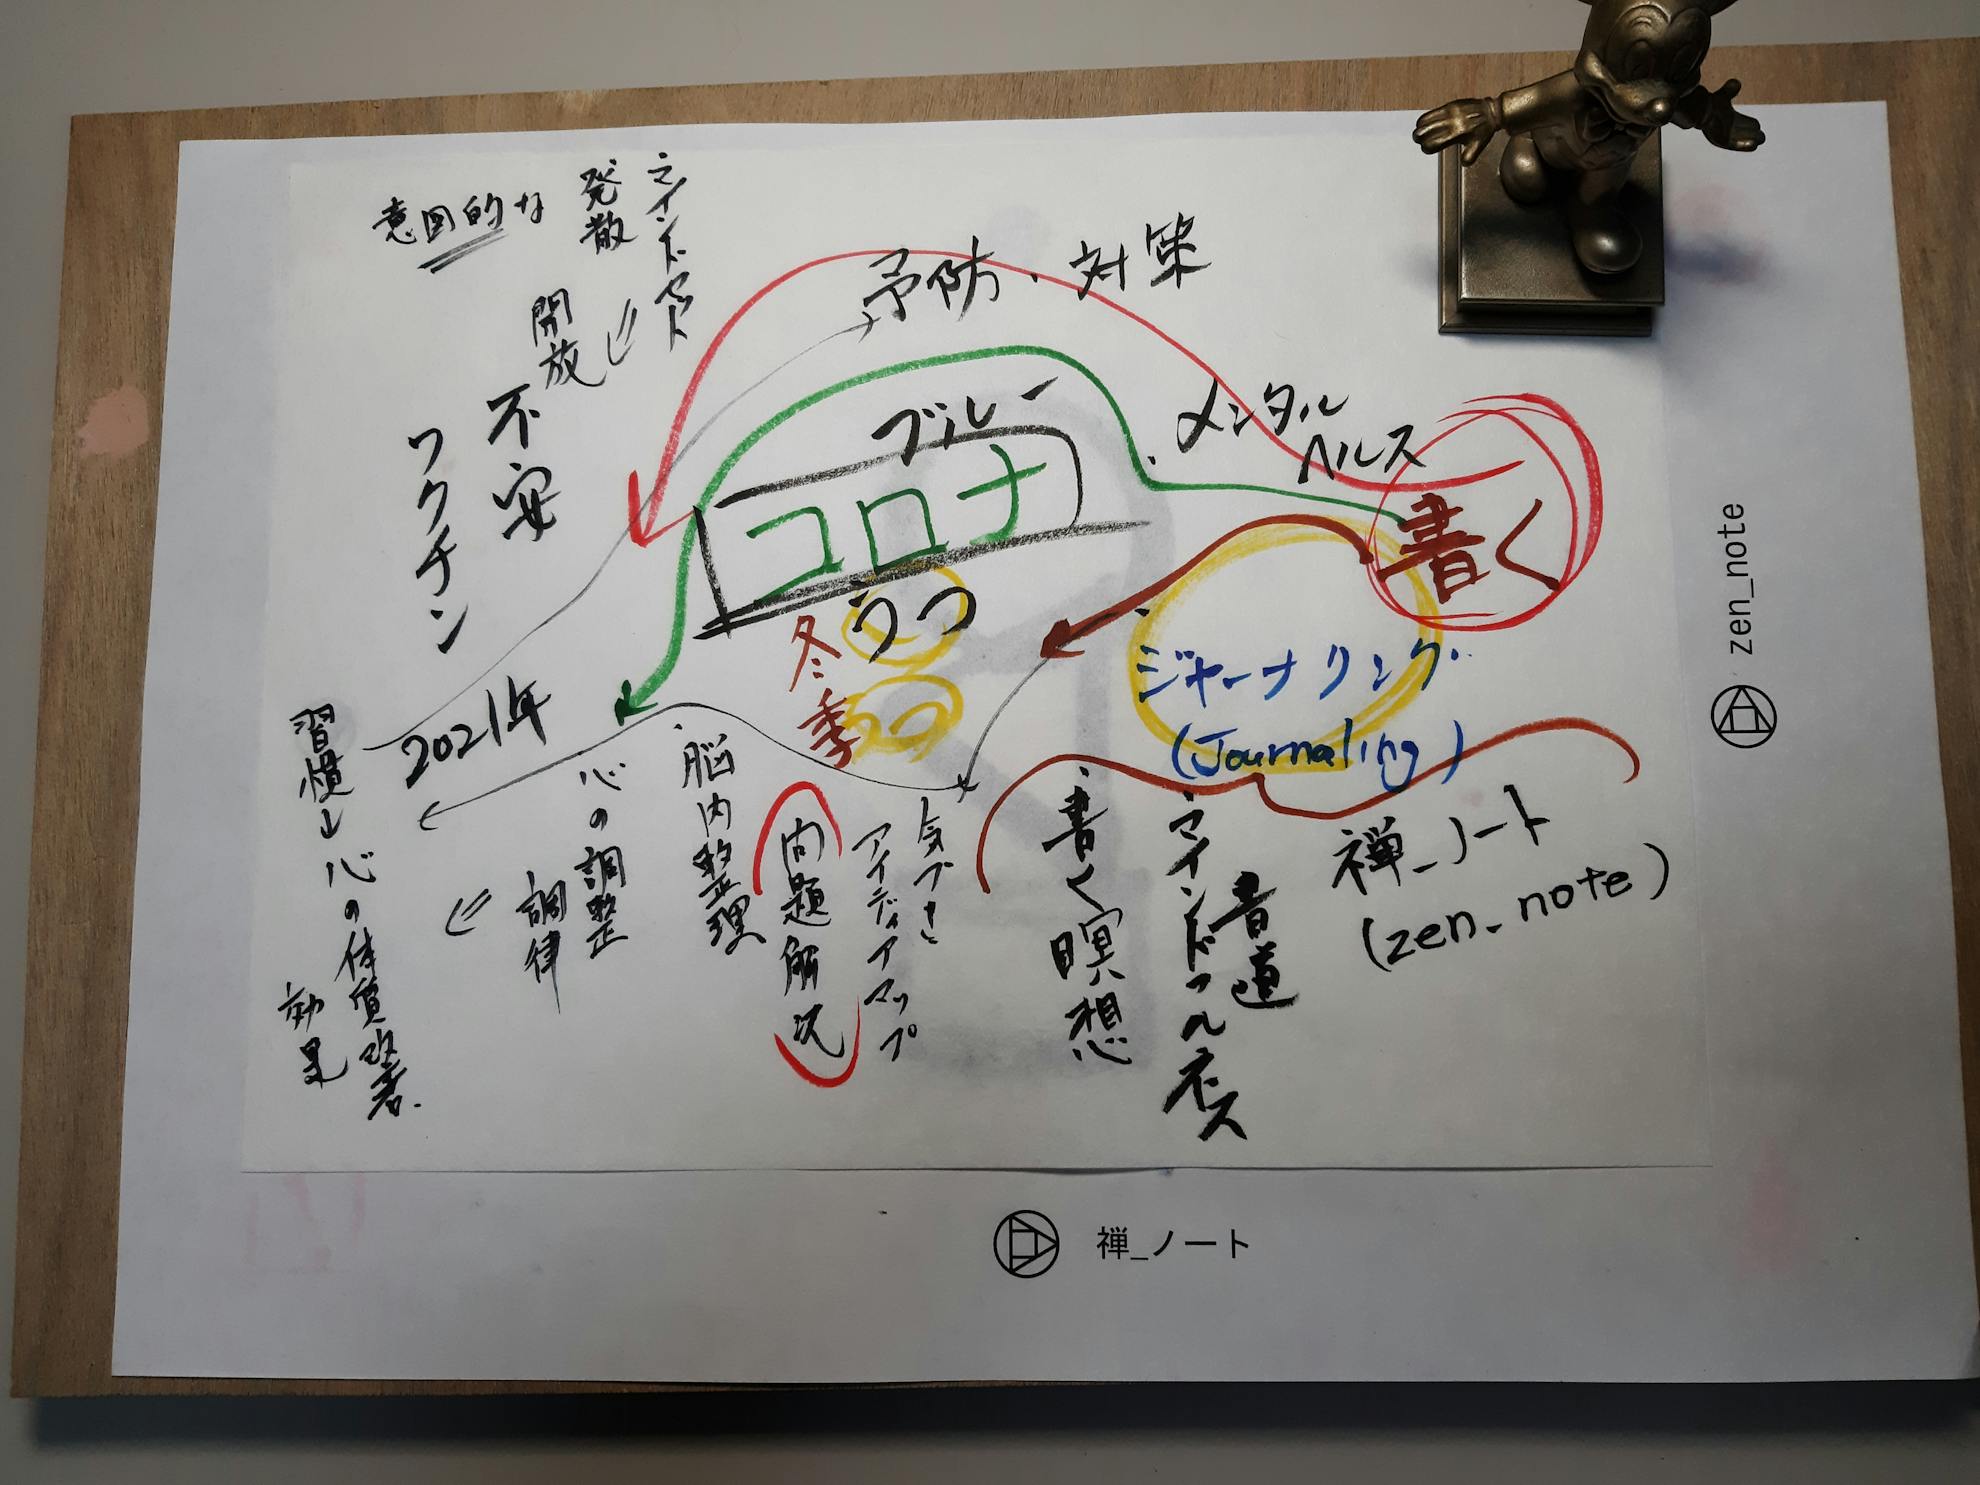 マインドセット
発散
意図的な
開放
不安
ワクチン
2021年
予防・対策
・メンタル
ヘルス
書く
ブルー
コロナ
うつ
冬季
・ジャーナリング
(Journaling)
禅_ノート
(zen_note)
書道
・マインドフルネス
・書く瞑想
気づき
アイディアマップ
問題解決
・脳内整理
心の調整
調律
習慣
心の体質改善
効果
zen_note
禅_ノート